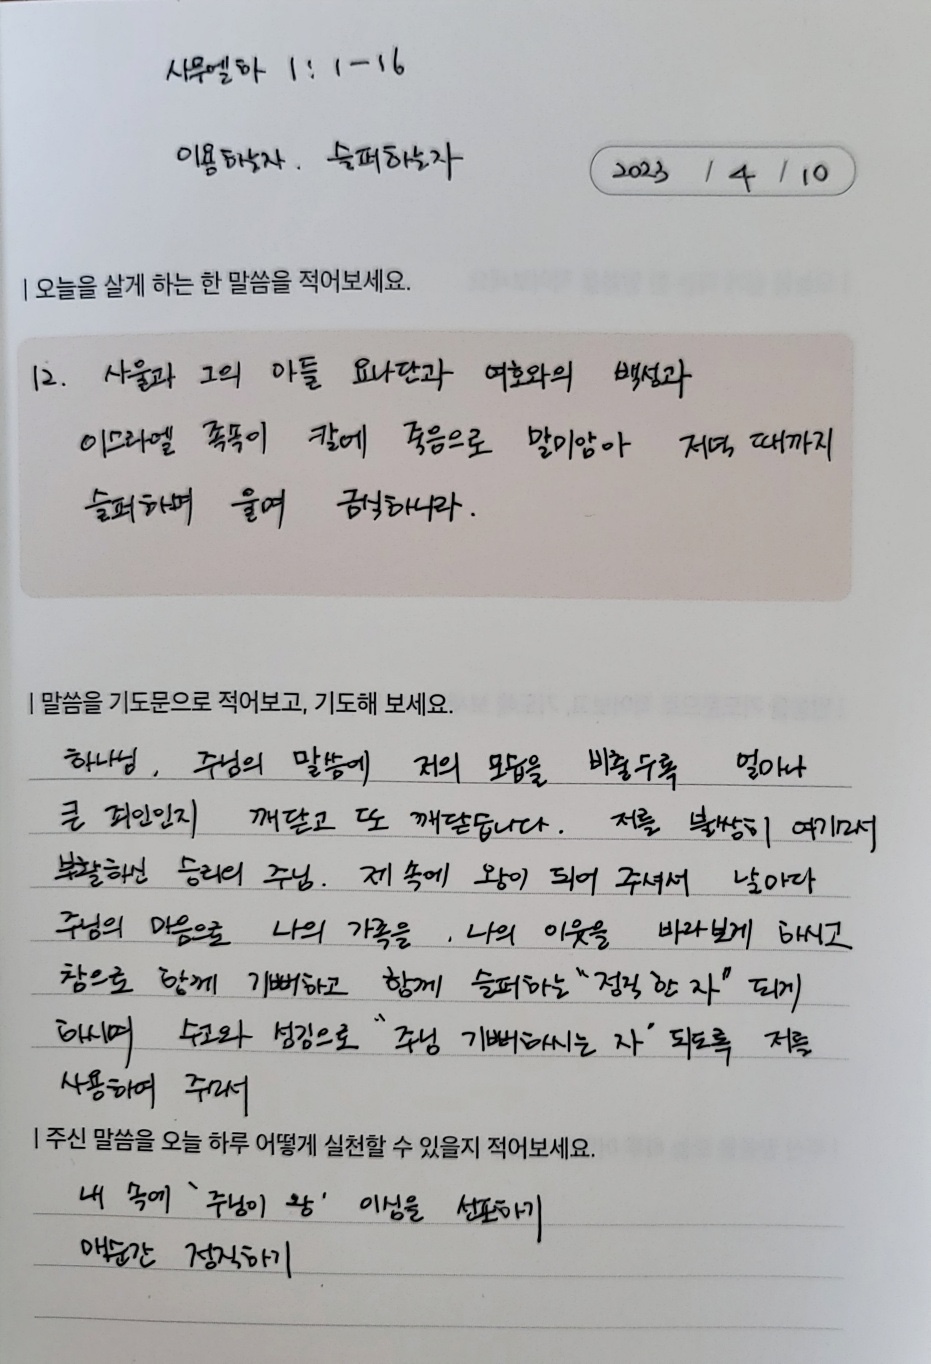 사무엘하 1:1-16
이용하는자. 슬퍼하는자
2023 / 4 / 10
| 오늘을 살게 하는 한 말씀을 적어보세요.
12. 사울과 그의 아들 요나단과 여호와의 백성과
이스라엘 족속이 칼에 죽음으로 말미암아 저녁 때까지
슬퍼하며 울며 금식하니라.
| 말씀을 기도문으로 적어보고, 기도해 보세요.
하나님, 주님의 말씀에 저의 모습을 비출수록 얼마나
큰 죄인인지 깨닫고 또 깨닫습니다. 저를 불쌍히 여기고서
부활하신 승리의 주님. 제 속에 왕이 되어 주셔서 날마다
주님의 마음으로 나의 가족을, 나의 이웃을 바라보게 하시고
참으로 함께 기뻐하고 함께 슬퍼하는 "정직한 자" 되게
하시며 수고와 섬김으로 "주님 기뻐하시는 자' 되도록 저를
사용하여 주소서
| 주신 말씀을 오늘 하루 어떻게 실천할 수 있을지 적어보세요.
내 속에 '주님이 왕' 이심을 선포하기
매순간 정직하기